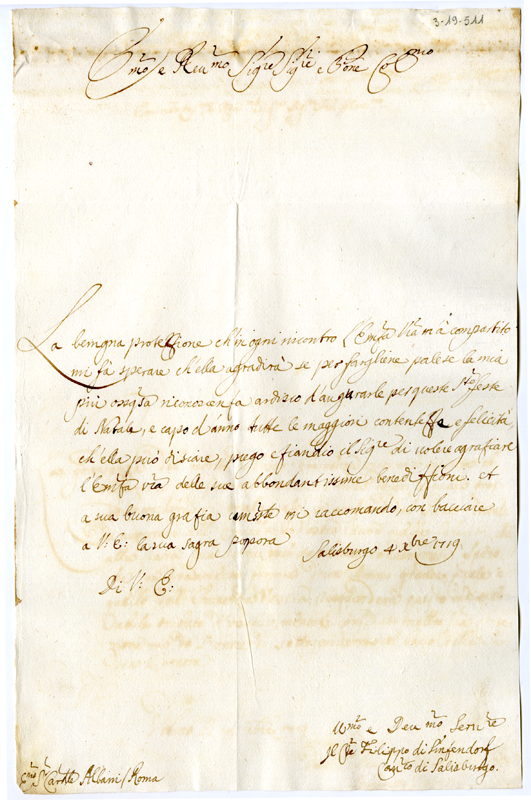 3-19-511
E.mo e Reu.mo Sig.re Sig.re e P.rone Col.mo
La benigna protessione ch'in ogni riscontro l'Em.za V.ra m'à compartito
mi fà sperare ch'ella agradirà se per fargliene palese la mia
più osseq.sa riconoscenza ardisco d'augurarle per queste S.te feste
di Natale, e capo d'anno tutte le maggiori contentesse, e felicità,
ch'ella può disiare, prego e fiandio il Sig.re di volere agrafiare
l'Em.za V.ra delle sue abbondantissime benedissioni. et
a sua buona grafia umilm.te mi raccomando, con bacciare
a V: E: la sua sagra porpora Salisburgo 4 Xbre 1719.
Di V: E:
Um.mo e Deu.mo Seru.re
Filippo di Sinsendorf
Can.co di Salisburgo.
Albani / Roma